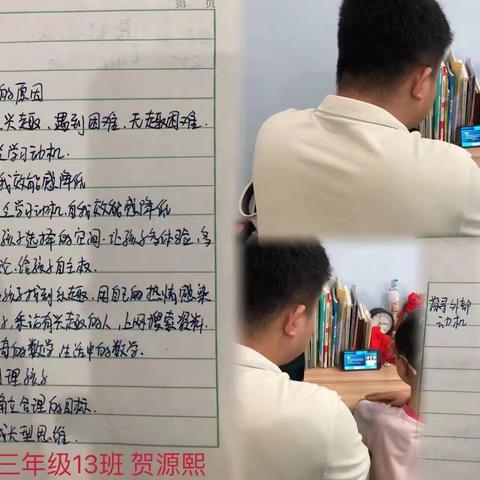 第 页
的原因
兴趣、遇到困难、无趣困难.
学习动机.
我效能感降低
学习动机,自我效能感降低
孩子选择的空间.让孩子多体验,多
论.给孩子自主权.
孩子找到乐趣,用自己的热情感染
采访有兴趣的人,上网搜索资料.
奇的数学 生活中的数学.
理孩子
确立合理的目标.
成长型思维.
三年级13班 贺源熙
动机